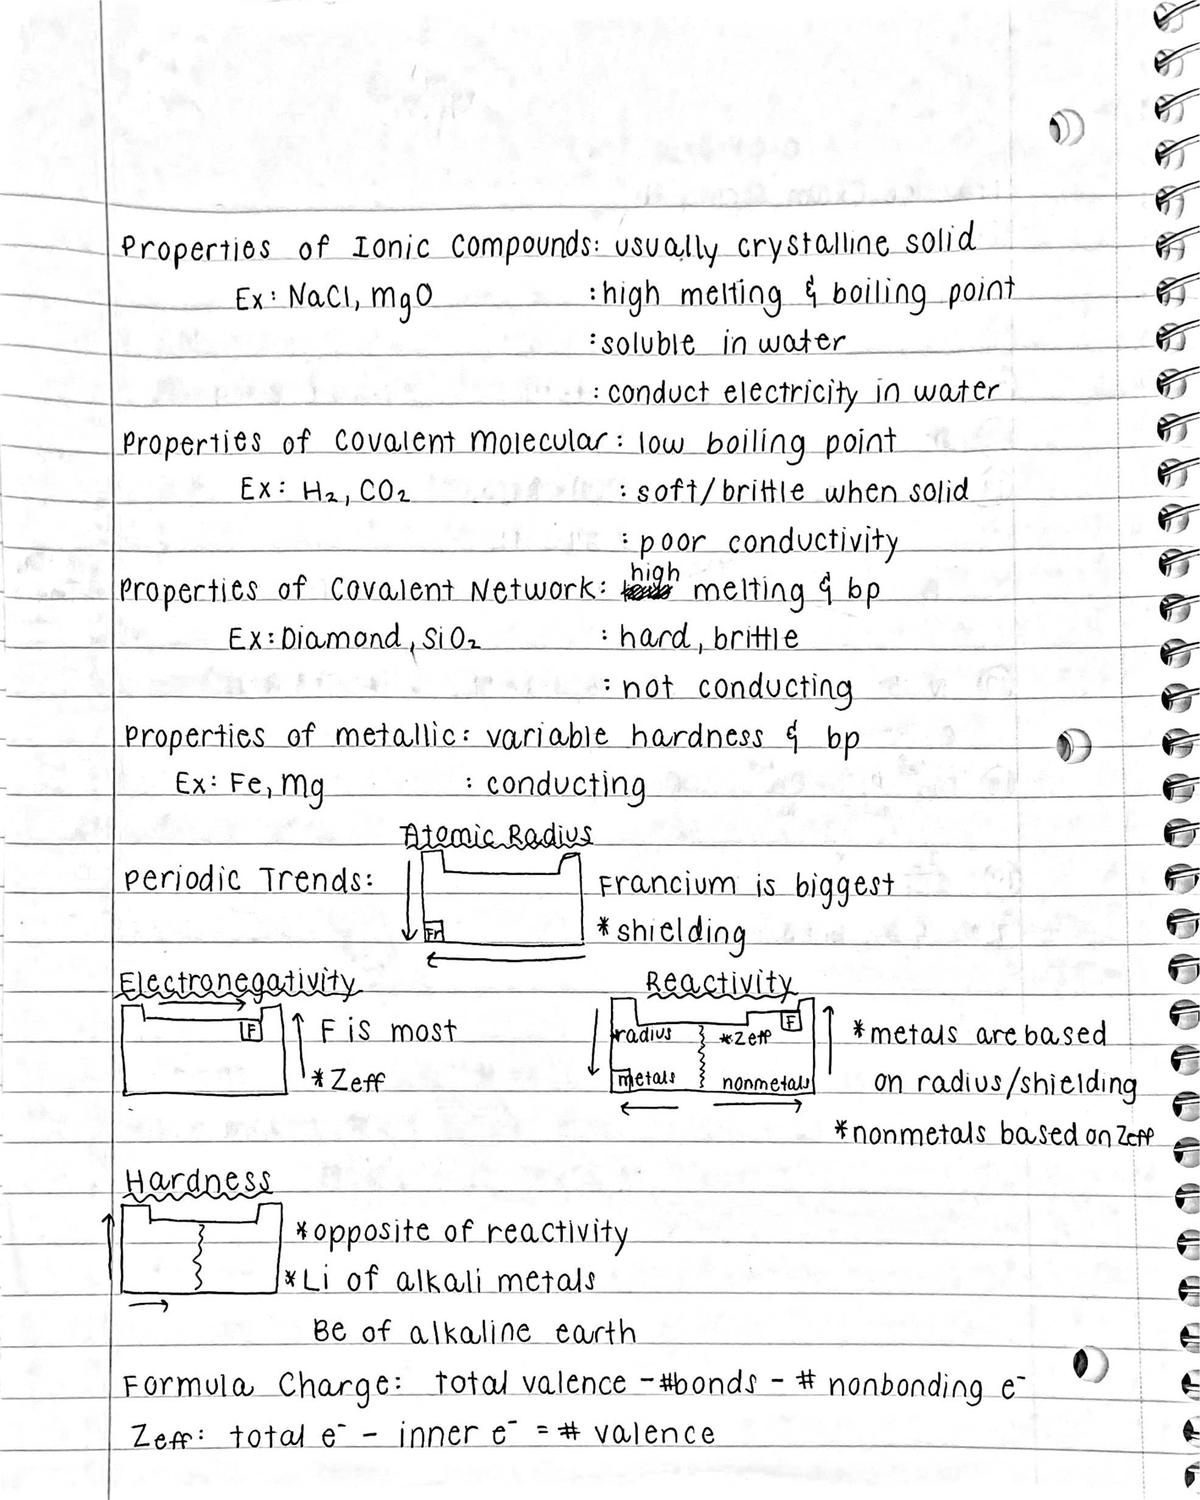 Properties of Ionic Compounds: usually crystalline solid
Ex: NaCl, MgO :high melting & boiling point
:soluble in water
: conduct electricity in water
Properties of Covalent Molecular: low boiling point
Ex: H₂, CO₂ : soft/brittle when solid
: poor conductivity
Properties of Covalent Network: high melting & bp
Ex: Diamond, SiO₂ : hard, brittle
: not conducting
Properties of metallic: variable hardness & bp
Ex: Fe, Mg : conducting
Atomic Radius
Periodic Trends: Francium is biggest
Fr *shielding
Electronegativity Reactivity
F F is most radius *Zeff F *metals are based
*Zeff metals nonmetals on radius/shielding
*nonmetals based on Zeff
Hardness
*opposite of reactivity
*Li of alkali metals
Be of alkaline earth
Formula Charge: total valence - #bonds - # nonbonding e⁻
Zeff: total e⁻ - inner e⁻ = # valence